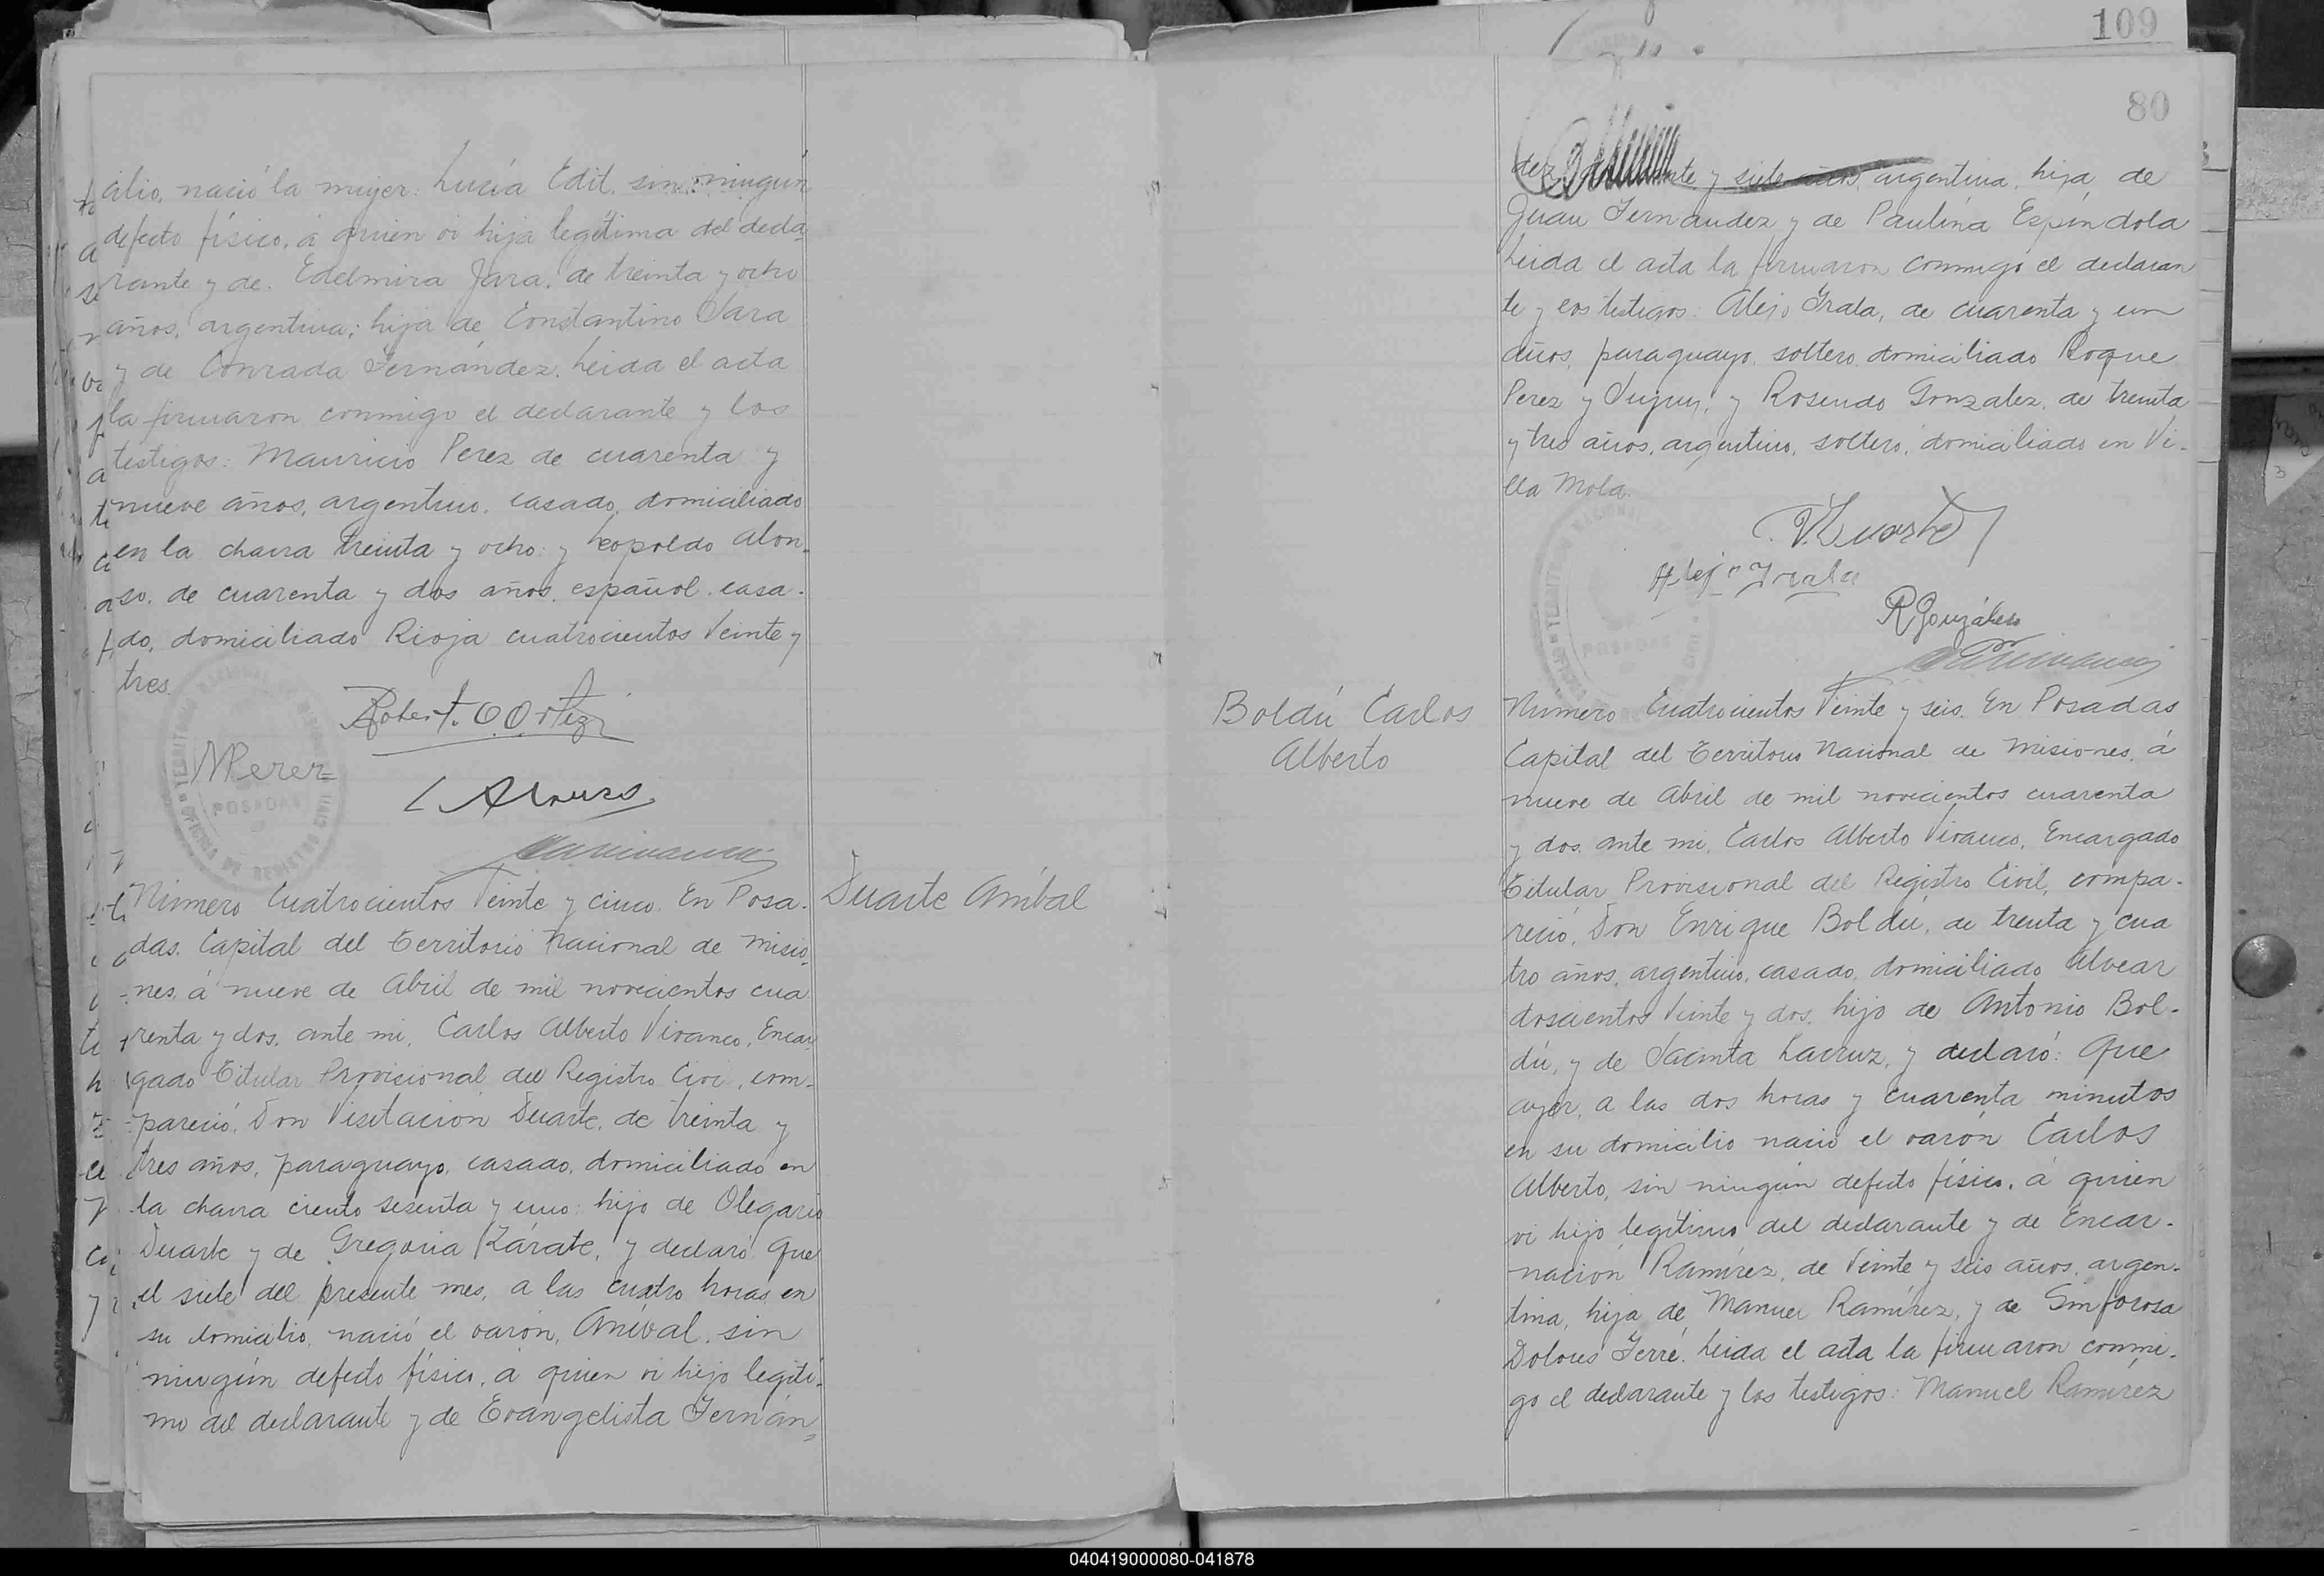 cilio, nació la mujer: Lucía Edit, sin ningún
defecto físico, á quien vi hija legítima del decla-
rante y de Edelmira Jara, de treinta y ocho
años, argentina; hija de Constantino Jara
y de Conrada Fernández. Leida el acta
la firmaron conmigo el declarante y los
testigos: Mauricio Perez de cuarenta y
nueve años, argentino, casado, domiciliado
en la chacra treinta y ocho: y Leopoldo Alon-
so, de cuarenta y dos años, español, casa-
do, domiciliado Rioja cuatrocientos veinte y
tres.
Robert. O. Ortiz
MPerez
L Alonso
POSADAS
Número Cuatrocientos Veinte y cinco. En Posa-
das, Capital del Territorio Nacional de Misio-
nes, á nueve de Abril de mil novecientos cua
renta y dos, ante mi, Carlos Alberto Vivanco, Encar
gado Titular Provisional del Registro Civil, com-
pareció, Don Visitacion Duarte, de treinta y
tres años, paraguayo, casado, domiciliado en
la chacra ciento sesenta y uno: hijo de Olegario
Duarte y de Gregoria Zárate, y declaró: Que
el siete del presente mes, a las cuatro horas en
su domicilio, nació el varón, Aníbal, sin
ningún defecto físico, á quien vi hijo legíti-
mo del declarante y de Evangelista Fernán-
Duarte Aníbal
109
80
dez, y siete años, argentina, hija de
Juan Fernandez y de Paulina Espíndola
Leida el acta la firmaron conmigo el declaran
te y los testigos: Alejo Irala, de cuarenta y un
años, paraguayo, soltero, domiciliado Roque
Perez y Jujuy, y Rosendo Gonzalez, de treinta
y tres años, argentino, soltero, domiciliado en Vi-
lla Mola.
V. Duarte
Alejo Irala
R González
POSADAS
Boldú Carlos
Alberto
Número Cuatrocientos Veinte y seis. En Posadas
Capital del Territorio Nacional de Misiones, á
nueve de Abril de mil novecientos cuarenta
y dos, ante mi, Carlos Alberto Vivanco, Encargado
Titular Provisional del Registro Civil, compa-
reció, Don Enrique Boldú, de treinta y cua
tro años, argentino, casado, domiciliado Alvear
doscientos veinte y dos, hijo de Antonio Bol-
dú, y de Jacinta Lacruz, y declaró: Que
ayer, a las dos horas y cuarenta minutos
en su domicilio nació el varón Carlos
Alberto, sin ningún defecto físico, á quien
vi hijo legítimo del declarante y de Encar-
nación Ramírez, de veinte y seis años, argen-
tina, hija de Manuel Ramírez, y de Sinforosa
Dolores Ferré. Leida el acta la firmaron conmi-
go el declarante y los testigos: Manuel Ramírez
040419000080-041878